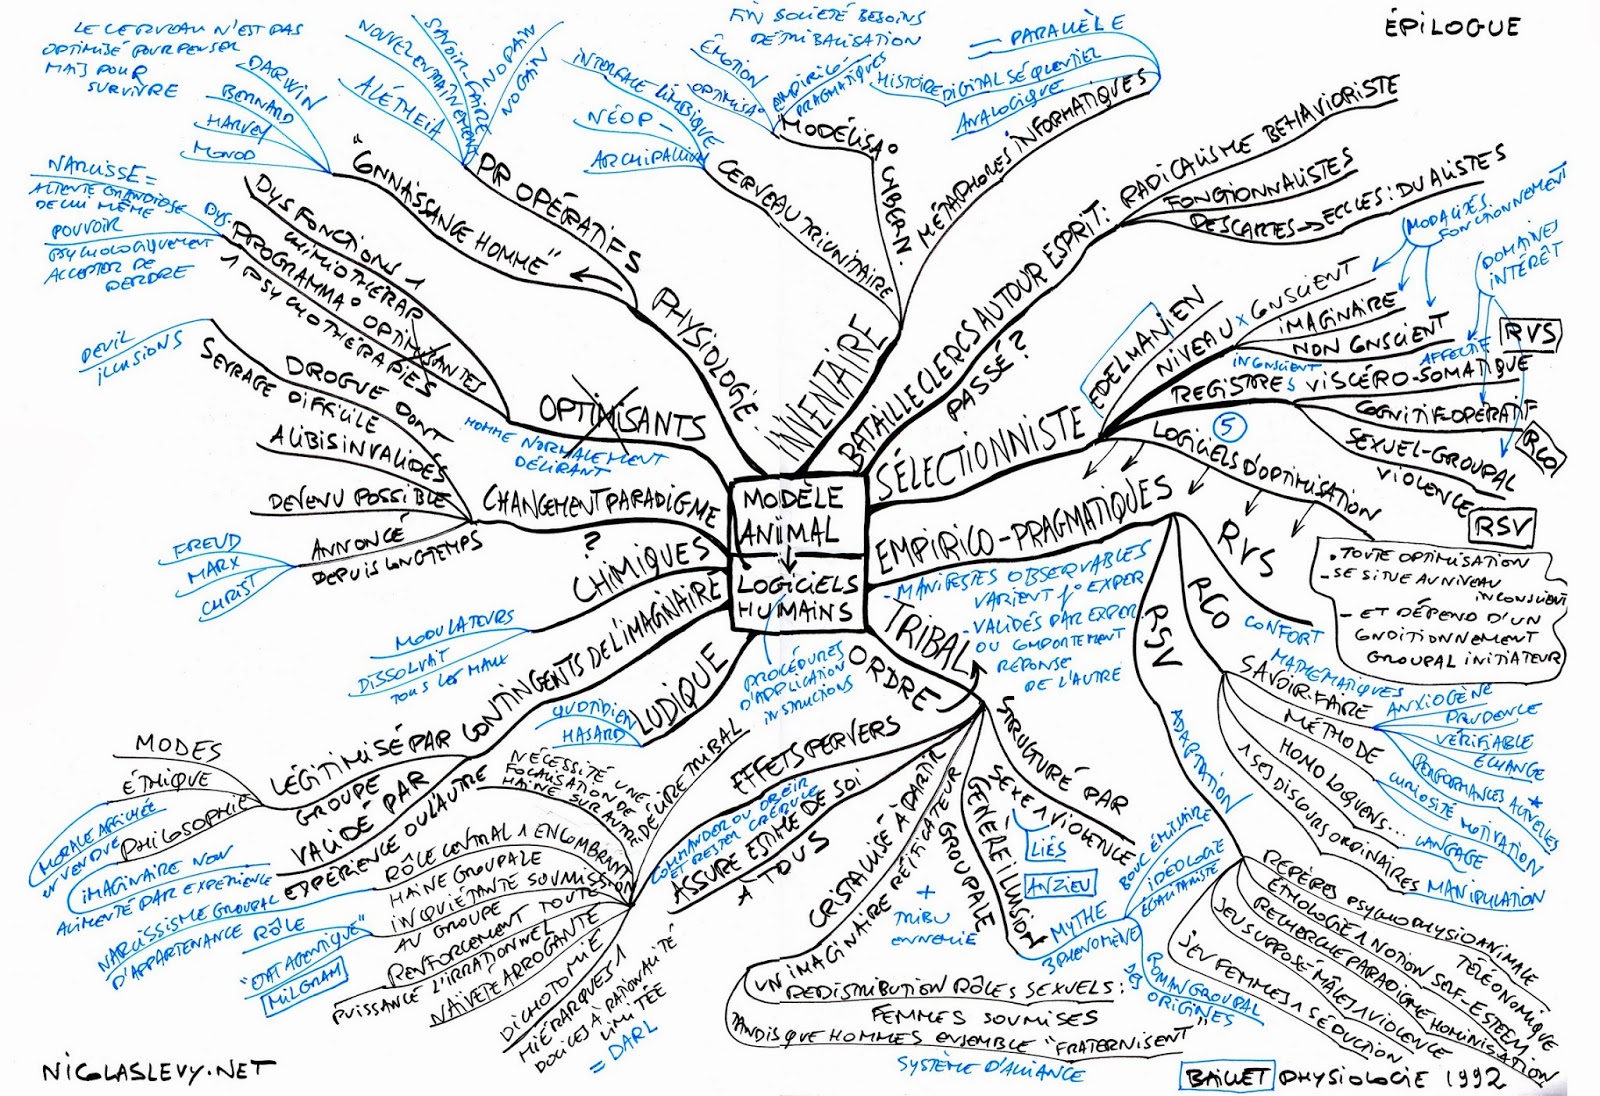 ÉPILOGUE
LE CERVEAU N'EST PAS
OPTIMISÉ POUR PENSER
MAIS POUR
SURVIVRE
DARWIN
BERNARD
HARVEY
MONOD
"CONNAISSANCE HOMME"
NOUVEL ENTRAINEMENT
SAVOIR-FAIRE
NO PAIN
NO GAIN
ALÉTHEIA
OPÉRATIFS
PHYSIOLOGIE
INTERFACE LIMBIQUE
NÉOP-
ARCHIPALLIUM
CERVEAU TRIUNITAIRE
FIN SOCIÉTÉ BESOINS
DÉTRIBALISATION
ÉMOTION
OPTIMISA°
EMPIRICO-
PRAGMATIQUES
MODÉLISA°
CYBERN.
PARALLÈLE
HISTOIRE DIGITAL SÉQUENTIEL
ANALOGIQUE
MÉTAPHORES INFORMATIQUES
INVENTAIRE
BATAILLE CLERCS AUTOUR ESPRIT:
PASSÉ ?
RADICALISME BEHAVIORISTE
FONCTIONNALISTES
DESCARTES → ECCLES: DUALISTES
NARCISSE =
ATTENTE GRANDIOSE
DE LUI MÊME
POUVOIR
PSYCHOLOGIQUEMENT
ACCEPTER DE
PERDRE
DYSFONCTIONS 1
CHIMIOTHÉRAP
DYS.
PROGRAMMA° OPTIMISANTES
1 PSYCHOTHÉRAPIES
OPTIMISANTS
HOMME NORMALEMENT
DÉLIRANT
DEUIL
ILLUSIONS
DROGUE DONT
SEVRAGE DIFFICILE
ALIBIS INVALIDÉS
DEVENU POSSIBLE
ANNONCÉ
DEPUIS LONGTEMPS
FREUD
MARX
CHRIST
CHANGEMENT PARADIGME
?
MODÈLE
ANIMAL
LOGICIELS
HUMAINS
PROCÉDURES
D'APPLICATION
INSTRUCTIONS
SÉLECTIONNISTE
EDELMANIEN
NIVEAU X CONSCIENT
IMAGINAIRE
NON CONSCIENT
INCONSCIENT
MODALITÉS
FONCTIONNEMENT
DOMAINES
INTÉRÊT
AFFECTIF
RVS
REGISTRES VISCÉRO-SOMATIQUE
COGNITIF-OPÉRATIF
RCO
SEXUEL-GROUPAL
VIOLENCE
RSV
5
LOGICIELS D'OPTIMISATION
• TOUTE OPTIMISATION
- SE SITUE AU NIVEAU
INCONSCIENT
- ET DÉPEND D'UN
CONDITIONNEMENT
GROUPAL INITIATEUR
EMPIRICO-PRAGMATIQUES
- MANIFESTES OBSERVABLES
VARIENT f° EXPER
- VALIDÉS PAR EXPER
OU COMPORTEMENT
RÉPONSE
DE L'AUTRE
RVS
CONFORT
RCO
RSV
MATHÉMATIQUES
SAVOIR-FAIRE
MÉTHODE
ANXIOGÈNE
PRUDENCE
VÉRIFIABLE
ÉCHANGE
PERFORMANCES ACTUELLES
CURIOSITÉ MOTIVATION
HOMO LOQUENS...
LANGAGE
1 SES DISCOURS ORDINAIRES MANIPULATION
ADAPTATION
REPÈRES PSYCHOPHYSIO ANIMALE
TÉLÉONOMIQUE
ETHOLOGIE 1 NOTION SELF-ESTEEM
RECHERCHE PARADIGME HOMINISATION
JEU SUPPOSÉ MÂLES 1 VIOLENCE
JEU FEMMES 1 SÉDUCTION
CHIMIQUES
MODULATEURS
DISSOLVAIT
TOUS LES MAUX
CONTINGENTS DE L'IMAGINAIRE
LÉGITIMISÉ PAR
GROUPE
MODES
ÉTHIQUE
PHILOSOPHIE
MORALE AFFICHÉE
VALIDÉ PAR
EXPÉRIENCE OU L'AUTRE
IMAGINAIRE NON
ALIMENTÉ PAR EXPÉRIENCE
LUDIQUE
QUOTIDIEN
HASARD
TRIBAL
ORDRE
DÉLIRE TRIBAL
NÉCESSITÉ UNE
FOCALISATION DE
HAINE SUR AUTRE
RÔLE CENTRAL 1 ENCOMBRANT
HAINE GROUPALE
INQUIÉTANTE SOUMISSION
AU GROUPE
NARCISSISME GROUPAL
D'APPARTENANCE
RÔLE
"ETAT AGENTIQUE"
MILGRAM
RENFORCEMENT TOUTE
PUISSANCE L'IRRATIONNEL
NAÏVETÉ ARROGANTE
DICHOTOMIE
HIÉRARQUES 1
DOCILES À RATIONALITÉ
LIMITÉE
= DARL
EFFETS PERVERS
COMMANDER OU OBÉIR
ET RESTER CRÉDULE
ASSURE ESTIME DE SOI
À TOUS
STRUCTURÉ PAR
SEXE 1 VIOLENCE
LIÉS
ANZIEU
GÉNÈRE ILLUSION
GROUPALE
+
TRIBU
ENNEMIE
MYTHE
3 PHÉNOMÈNES
BOUC ÉMISSAIRE
IDÉOLOGIE
ÉGALITARISTE
ROMAN GROUPAL
DES ORIGINES
CRISTALLISÉ À PARTIR
IMAGINAIRE RÉIFICATEUR
UN IMAGINAIRE
REDISTRIBUTION RÔLES SEXUELS:
FEMMES SOUMISES
TANDIS QUE HOMMES ENSEMBLE "FRATERNISENT"
SYSTÈME D'ALLIANCE
NICOLASLEVY.NET
BAILLET PHYSIOLOGIE 1992